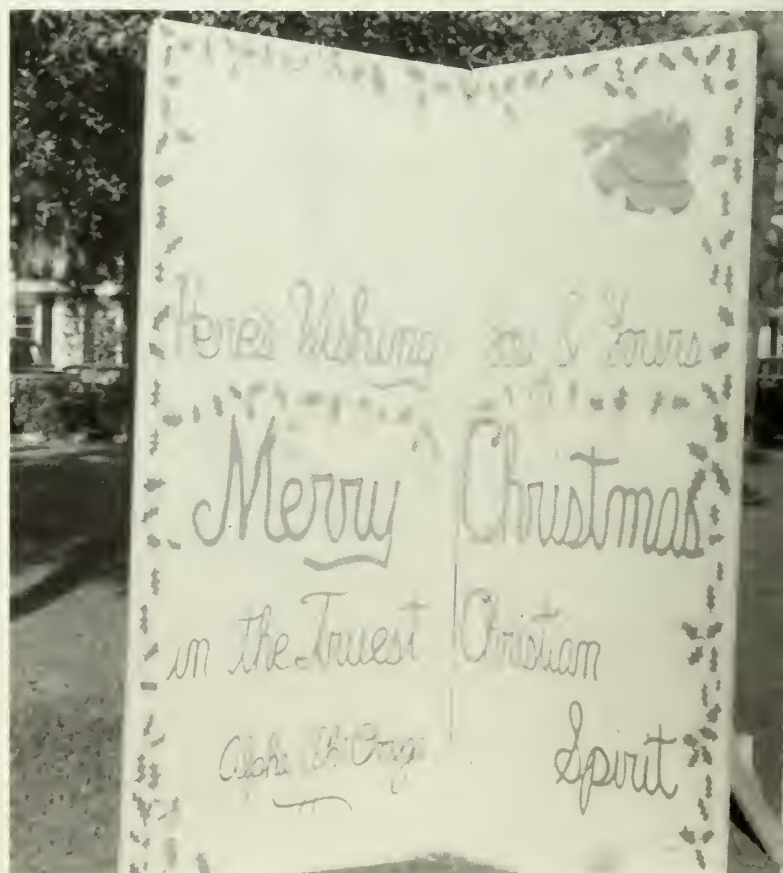 Heres Wishing You & Yours
Merry Christmas
in the Truest Christian
Spirit
Alpha Phi Omega